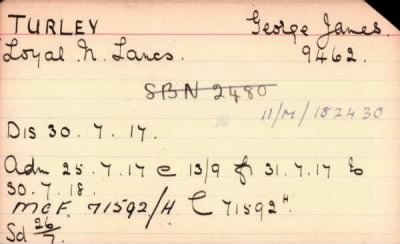 TURLEY George James.
Loyal N. Lancs. 9462.
SBN 2480
11/M/182430
Dis 30. 7. 17.
Adm 25. 7. 17 @ 13/9 fr 31. 7. 17 to
30. 7. 18.
MCF. 71592/H C 71592H.
Sd 26/7